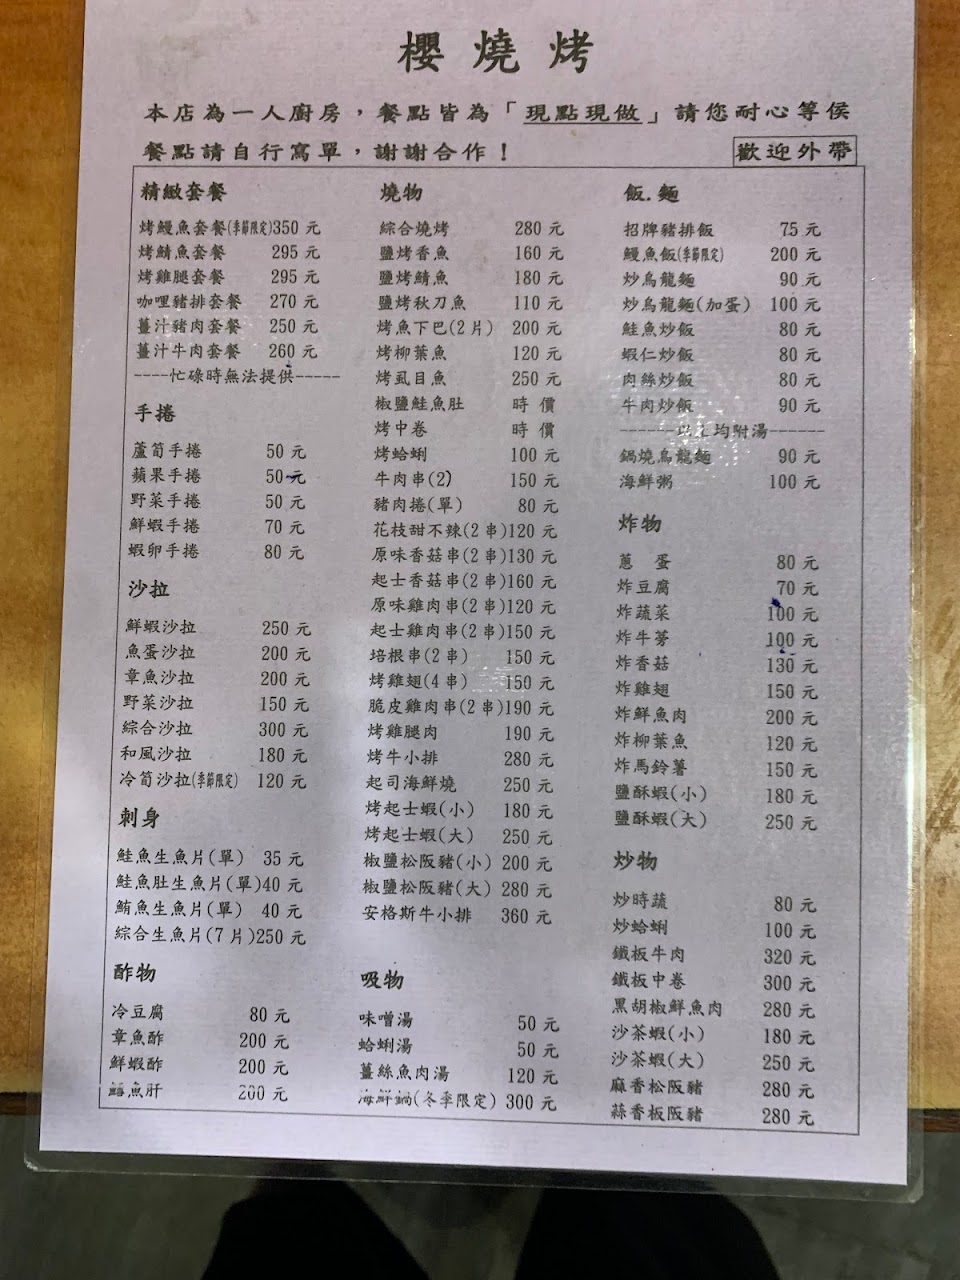 櫻燒烤
本店為一人廚房，餐點皆為「現點現做」請您耐心等侯
餐點請自行寫單，謝謝合作！
歡迎外帶
精緻套餐
烤鰻魚套餐(季節限定)350 元
烤鯖魚套餐 295 元
烤雞腿套餐 295 元
咖哩豬排套餐 270 元
薑汁豬肉套餐 250 元
薑汁牛肉套餐 260 元
----忙碌時無法提供-----
手捲
蘆筍手捲 50 元
蘋果手捲 50 元
野菜手捲 50 元
鮮蝦手捲 70 元
蝦卵手捲 80 元
沙拉
鮮蝦沙拉 250 元
魚蛋沙拉 200 元
章魚沙拉 200 元
野菜沙拉 150 元
綜合沙拉 300 元
和風沙拉 180 元
冷筍沙拉(季節限定) 120 元
刺身
鮭魚生魚片(單) 35 元
鮭魚肚生魚片(單)40 元
鮪魚生魚片(單) 40 元
綜合生魚片(7 片)250 元
酢物
冷豆腐 80 元
章魚酢 200 元
鮮蝦酢 200 元
魚肝 200 元
燒物
綜合燒烤 280 元
鹽烤香魚 160 元
鹽烤鯖魚 180 元
鹽烤秋刀魚 110 元
烤魚下巴(2 片) 200 元
烤柳葉魚 120 元
烤虱目魚 250 元
椒鹽鮭魚肚 時 價
烤中卷 時 價
烤蛤蜊 100 元
牛肉串(2) 150 元
豬肉捲(單) 80 元
花枝甜不辣(2 串)120 元
原味香菇串(2 串)130 元
起士香菇串(2 串)160 元
原味雞肉串(2 串)120 元
起士雞肉串(2 串)150 元
培根串(2 串) 150 元
烤雞翅(4 串) 150 元
脆皮雞肉串(2 串)190 元
烤雞腿肉 190 元
烤牛小排 280 元
起司海鮮燒 250 元
烤起士蝦(小) 180 元
烤起士蝦(大) 250 元
椒鹽松阪豬(小) 200 元
椒鹽松阪豬(大) 280 元
安格斯牛小排 360 元
吸物
味噌湯 50 元
蛤蜊湯 50 元
薑絲魚肉湯 120 元
海鮮鍋(冬季限定) 300 元
飯.麵
招牌豬排飯 75 元
鰻魚飯(季節限定) 200 元
炒烏龍麵 90 元
炒烏龍麵(加蛋) 100 元
鮭魚炒飯 80 元
蝦仁炒飯 80 元
肉絲炒飯 80 元
牛肉炒飯 90 元
------以上均附湯------
鍋燒烏龍麵 90 元
海鮮粥 100 元
炸物
蔥 蛋 80 元
炸豆腐 70 元
炸蔬菜 100 元
炸牛蒡 100 元
炸香菇 130 元
炸雞翅 150 元
炸鮮魚肉 200 元
炸柳葉魚 120 元
炸馬鈴薯 150 元
鹽酥蝦(小) 180 元
鹽酥蝦(大) 250 元
炒物
炒時蔬 80 元
炒蛤蜊 100 元
鐵板牛肉 320 元
鐵板中卷 300 元
黑胡椒鮮魚肉 280 元
沙茶蝦(小) 180 元
沙茶蝦(大) 250 元
麻香松阪豬 280 元
蒜香板阪豬 280 元